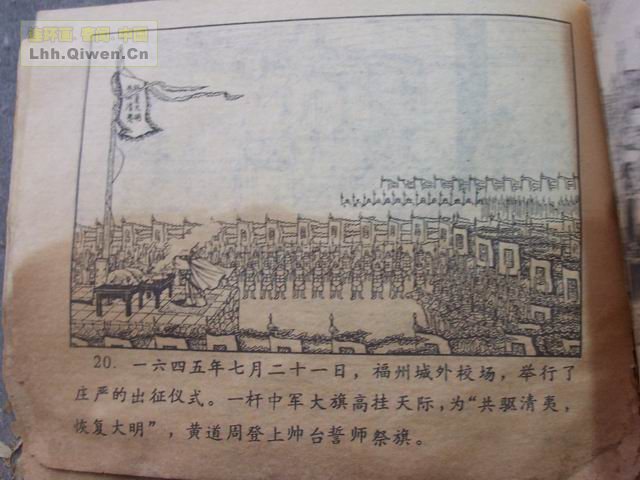 连环画 · 奇闻 · 中国
Lhh.Qiwen.Cn
20. 一六四五年七月二十一日，福州城外校场，举行了
庄严的出征仪式。一杆中军大旗高挂天际，为“共驱清夷，
恢复大明”，黄道周登上帅台誓师祭旗。